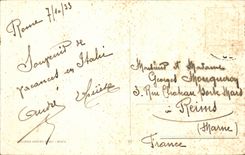 Rome 7/10/33
Souvenir de
vacances en Italie
André
Monsieur et Madame
Georges
3, Rue Chateau Porte Mars
à Reims
(Marne)
France